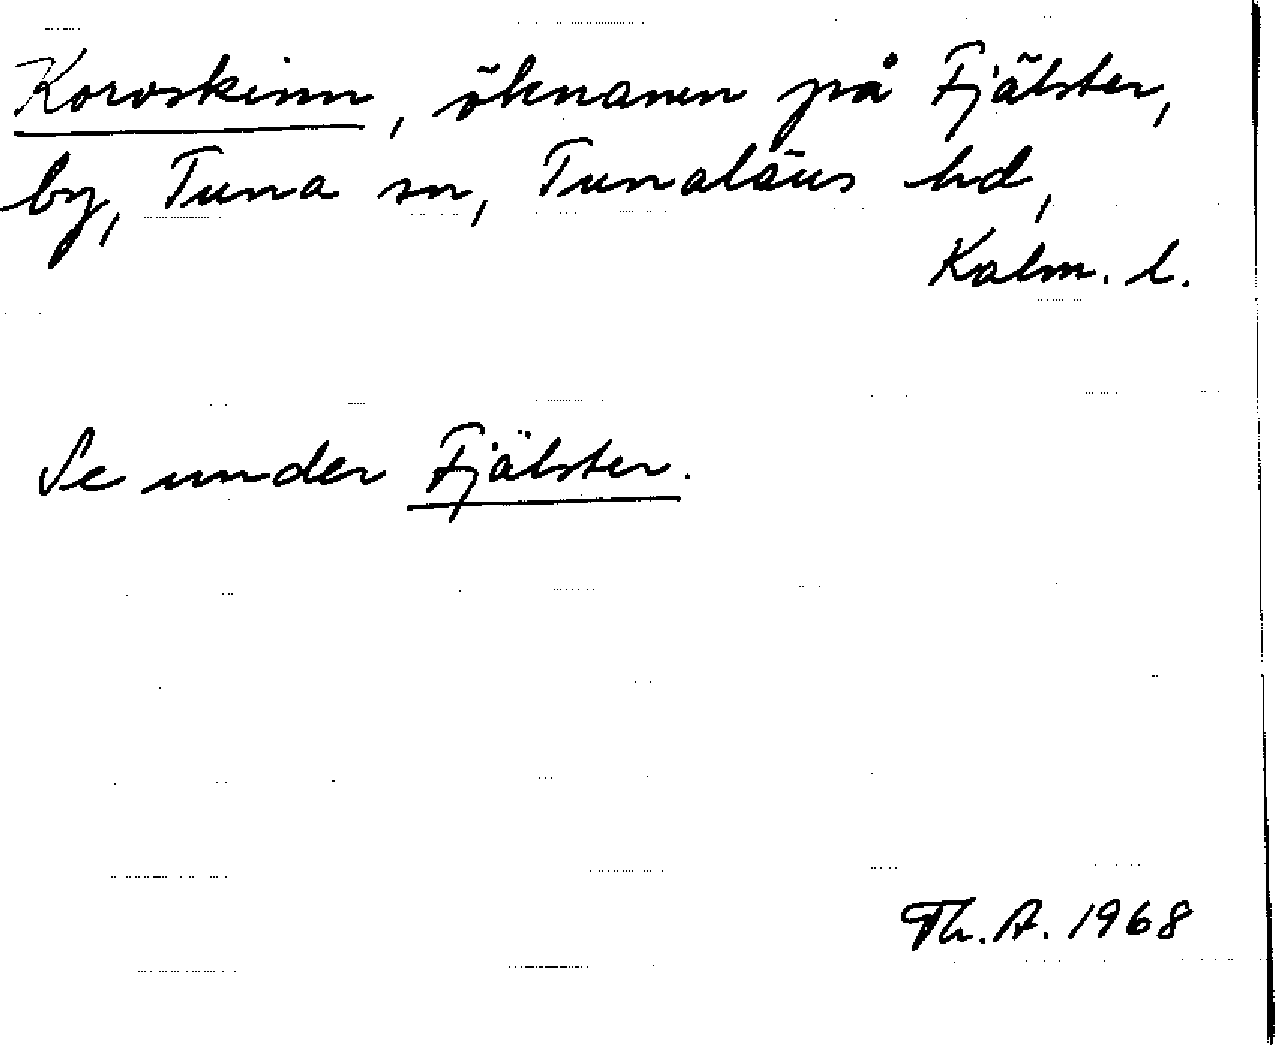 Korvskinn, öknamn på Fjälster,
by, Tuna sn, Tunaläns hd,
Kalm. l.
Se under Fjälster.
Th. A. 1968